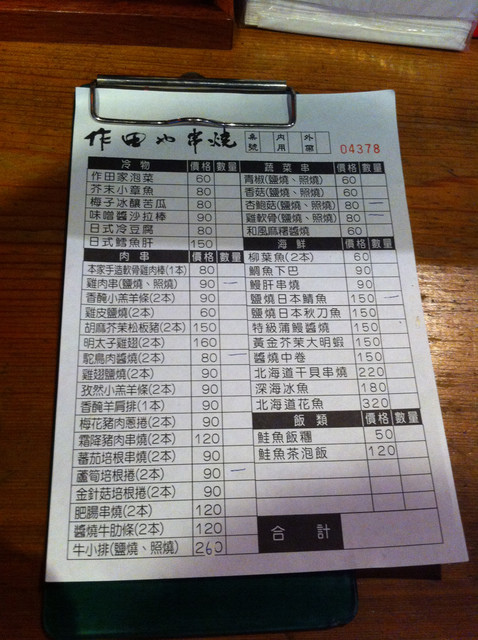 作田の串燒 桌號 內用 外帶 04378
冷物 價格 數量
作田家泡菜 60
芥末小章魚 80
梅子冰釀苦瓜 80
味噌醬沙拉棒 90
日式冷豆腐 80
日式鱈魚肝 150
肉串 價格 數量
本家手造軟骨雞肉棒(1本) 80
雞肉串(鹽燒、照燒) 90 一
香醃小羔羊條(2本) 90
雞皮鹽燒(2本) 60
胡麻芥茉松板豬(2本) 150
明太子雞翅(2本) 160
鴕鳥肉醬燒(2本) 80 一
雞翅鹽燒(2本) 90
孜然小羔羊條(2本) 90
香醃羊肩排(1本) 90
梅花豬肉蔥捲(2本) 90
霜降豬肉串燒(2本) 120
蕃茄培根串燒(2本) 90
蘆筍培根捲(2本) 90 一
金針菇培根捲(2本) 90
肥腸串燒(2本) 120
醬燒牛肋條(2本) 120
牛小排(鹽燒、照燒) 260
蔬菜串 價格 數量
青椒(鹽燒、照燒) 60
香菇(鹽燒、照燒) 60
杏鮑菇(鹽燒、照燒) 80 一
雞軟骨(鹽燒、照燒) 80 一
和風麻糬醬燒 60
海鮮 價格 數量
柳葉魚(2本) 60
鯛魚下巴 90
鰻肝串燒 90
鹽燒日本鯖魚 150 一
鹽燒日本秋刀魚 150
特級蒲鰻醬燒 150
黃金芥茉大明蝦 150
醬燒中卷 150
北海道干貝串燒 220
深海冰魚 180
北海道花魚 320
飯類 價格 數量
鮭魚飯糰 50
鮭魚茶泡飯 120
合計